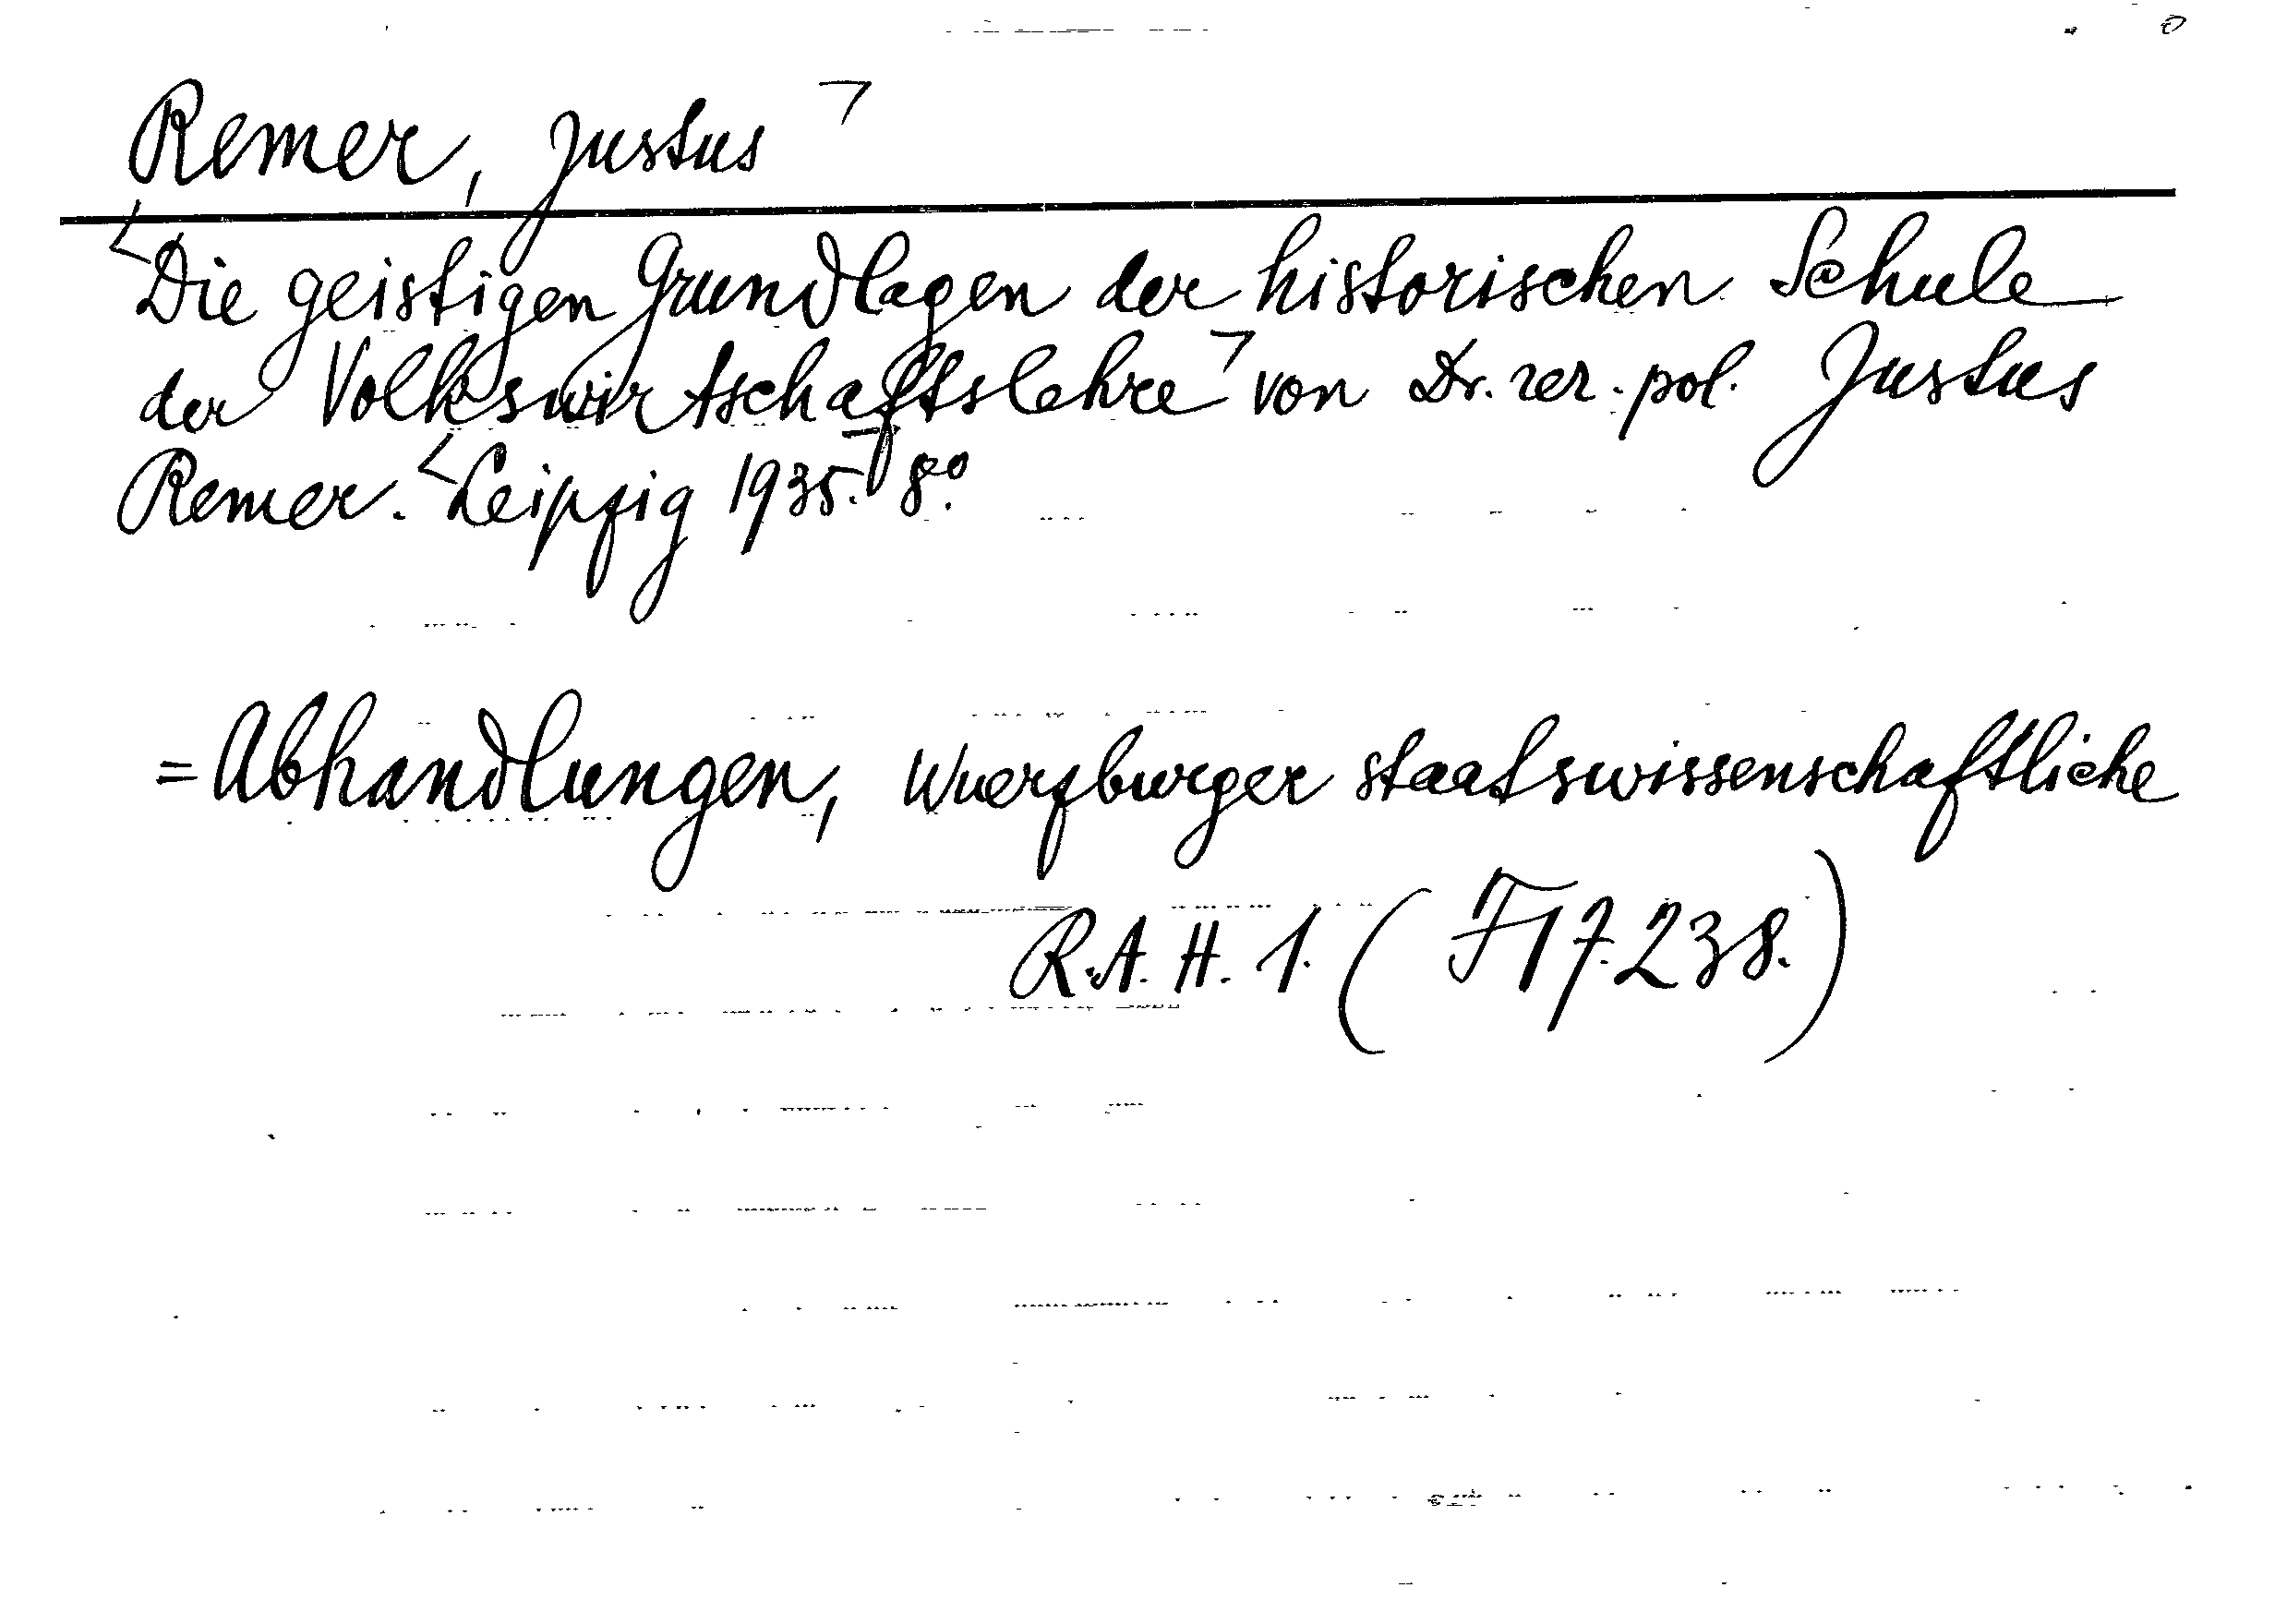 Remer, Justus
Die geistigen Grundlagen der historischen Schule
der Volkswirtschaftslehre von Dr. rer. pol. Justus
Remer. Leipzig 1935. 8º.
= Abhandlungen, Wuerzburger staatswissenschaftliche
R.A. H. 1. ( F 17.238. )